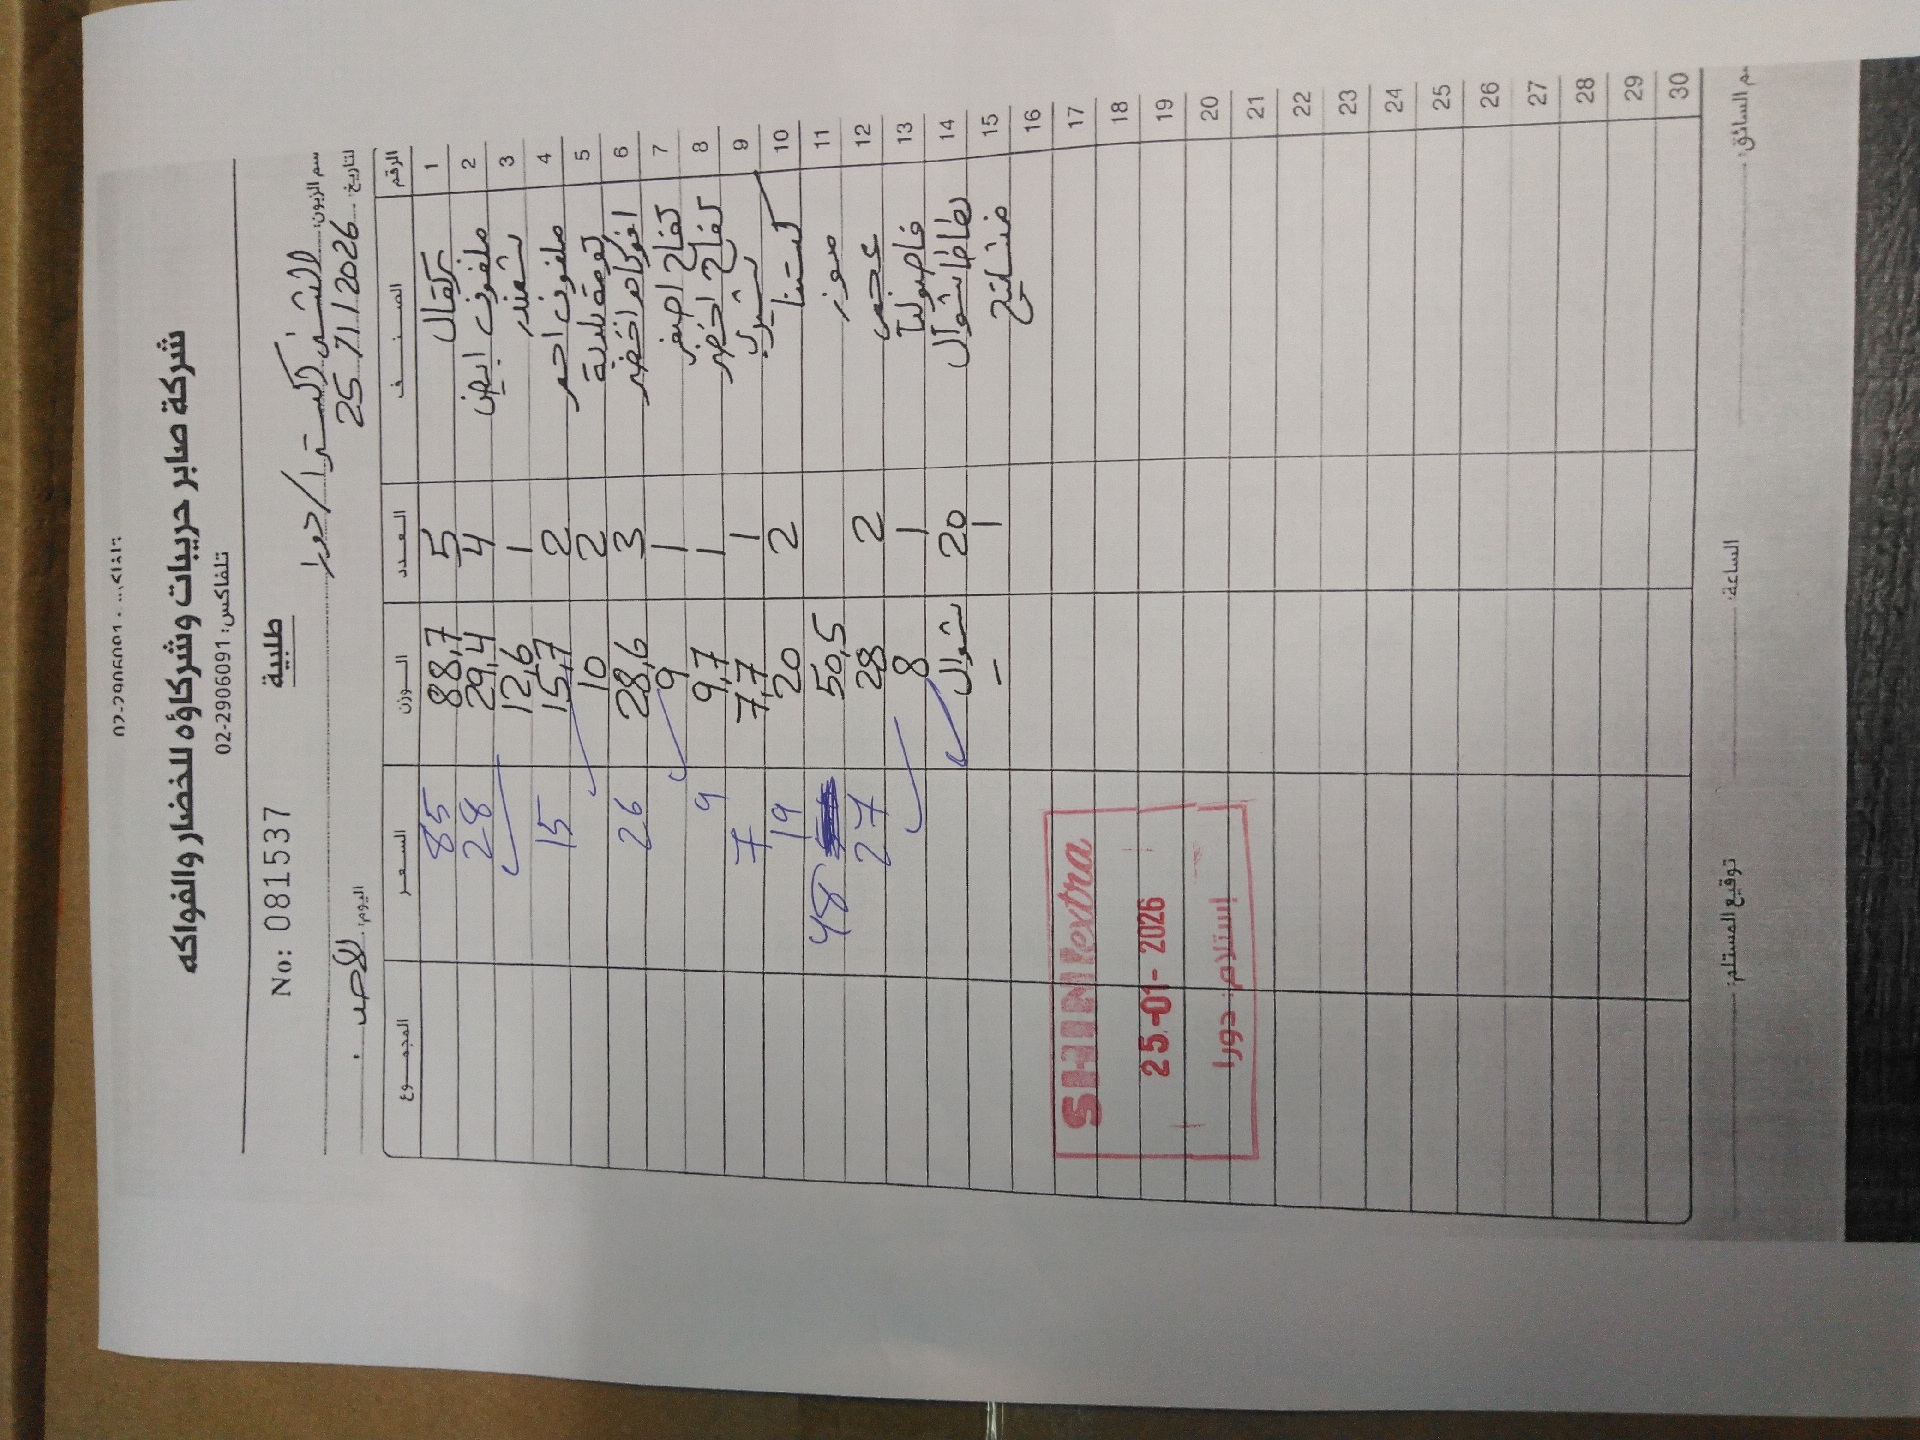 شركة صابر حريبات وشركاؤه للخضار والفواكه
تلفاكس: 02-2906091
No: 081537
طلبية
سم الزبون: الشني اكسترا / دورا
لتاريخ: 25 / 1 / 2026 اليوم: الأحد
الرقم الصنف العدد الوزن السعر المجموع
1 برتقال 5 88,7 85
2 ملفوف ابيض 4 29,4 28
3 شمندر 1 12,6
4 ملفوف احمر 2 15,7 15
5 ثومة بلدية 2 10
6 افوكادو اخضر 3 28,6 26
7 تفاح اصفر 1 9
8 تفاح اخضر 1 9,7 9
9 1 7,7 7
10 كستنا 2 20 19
11 موز 50,5 48
12 عجمي 2 28 27
13 فاصوليا 1 8
14 بطاطا شوال 20 شوال
15 1 -
16
17
18
19
20
21
22
23
24
25
26
27
28
29
30
SHINI extra
25-01-2026
إستلام: دورا
م السائق: الساعة: توقيع المستلم: